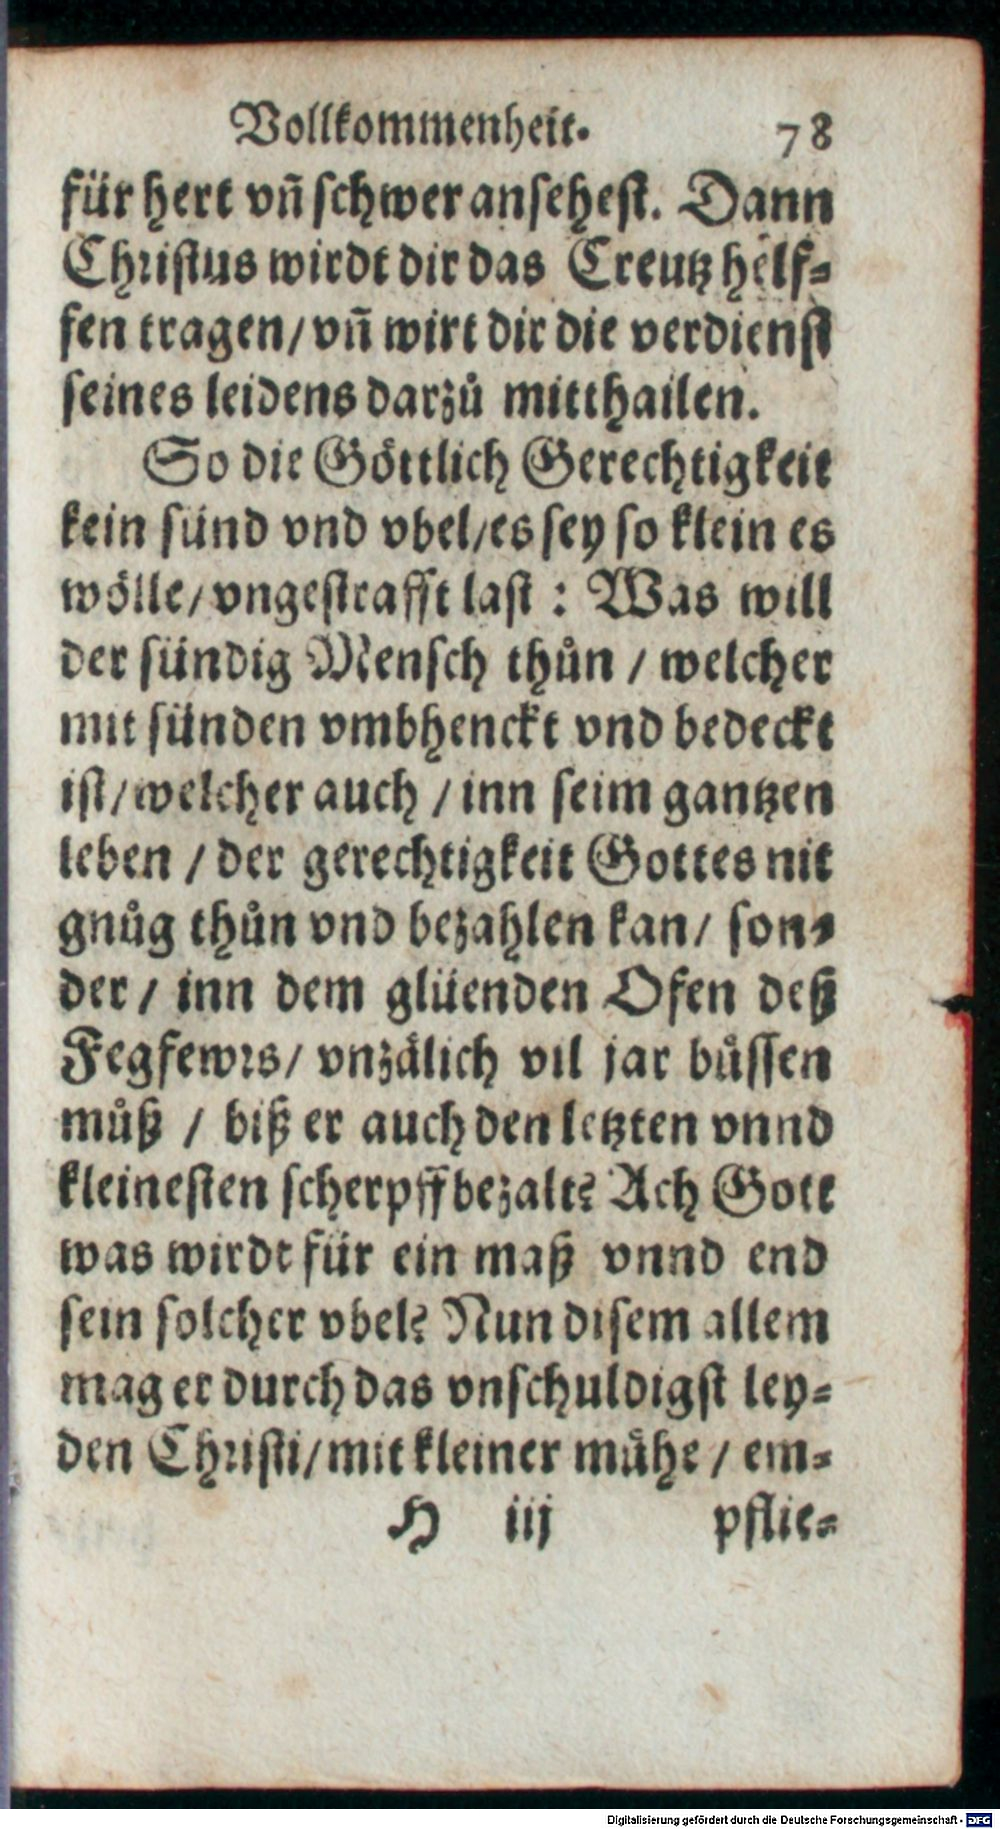 Vollkommenheit. 78
für hert vñ schwer ansehest. Dann
Christus wirdt dir das Creutz helf⸗
fen tragen/ vñ wirt dir die verdienst
seines leidens darzů mitthailen.
So die Göttlich Gerechtigkeit
kein sünd vnd vbel/ es sey so klein es
wölle/ vngestrafft last : Was will
der sündig Mensch thůn / welcher
mit sünden vmbhenckt vnd bedeckt
ist/ welcher auch / inn seim gantzen
leben / der gerechtigkeit Gottes nit
gnůg thůn vnd bezahlen kan/ son⸗
der / inn dem glüenden Ofen deß
Fegfewrs/ vnzälich vil jar bůssen
můß / biß er auch den letzten vnnd
kleinesten scherpff bezalt? Ach Gott
was wirdt für ein maß vnnd end
sein solcher vbel? Nun disem allem
mag er durch das vnschuldigst ley⸗
den Christi/ mit kleiner mühe / em⸗
H iij pflie⸗
Digitalisierung gefördert durch die Deutsche Forschungsgemeinschaft - DFG